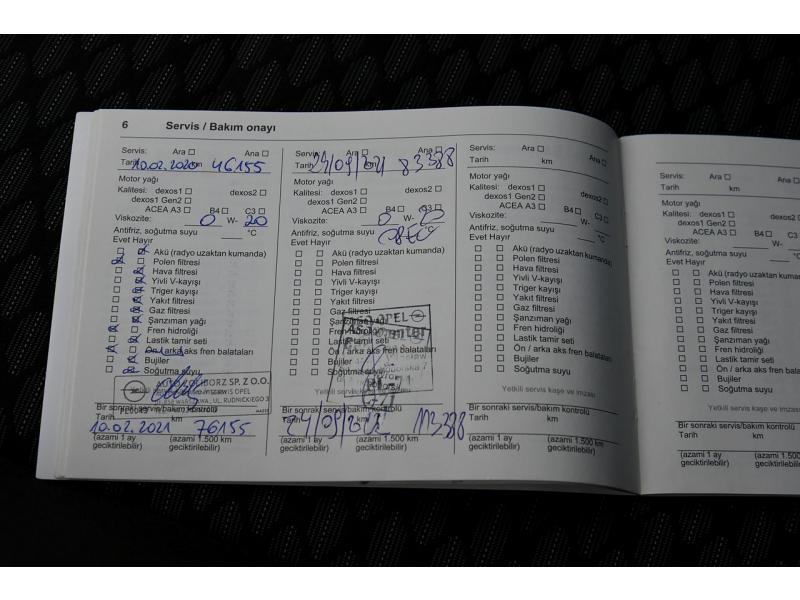 6 Servis / Bakım onayı
Servis: Ara Ana
Tarih 10.02.2020 km 46155
Motor yağı
Kalitesi: dexos1 dexos2
dexos1 Gen2
ACEA A3 B4 C3
Viskozite: 0 W- 20
Antifriz, soğutma suyu °C
Evet Hayır
Akü (radyo uzaktan kumanda)
Polen filtresi
Hava filtresi
Yivli V-kayışı
Triger kayışı
Yakıt filtresi
Gaz filtresi
Şanzıman yağı
Fren hidroliği
Lastik tamir seti
Ön / arka aks fren balataları
Bujiler
Soğutma suyu
SP. Z O.O.
SERWIS OPEL
WARSZAWA, UL. RUDNICKIEGO 3
Bir sonraki servis/bakım kontrolü
Tarih km
10.02.2021 76155
(azami 1 ay geciktirilebilir) (azami 1.500 km geciktirilebilir)
Servis: Ara Ana
Tarih 24/09/2021 km 83388
Motor yağı
Kalitesi: dexos1 dexos2
dexos1 Gen2
ACEA A3 B4 C3
Viskozite: 0 W- 20
Antifriz, soğutma suyu °C
Evet Hayır
Akü (radyo uzaktan kumanda)
Polen filtresi
Hava filtresi
Yivli V-kayışı
Triger kayışı
Yakıt filtresi
Gaz filtresi
Şanzıman yağı
Fren hidroliği
Lastik tamir seti
Ön / arka aks fren balataları
Bujiler
Soğutma suyu
OPEL
Yetkili servis kaşe ve imzası
Bir sonraki servis/bakım kontrolü
Tarih km
24/09/2022 113388
(azami 1 ay geciktirilebilir) (azami 1.500 km geciktirilebilir)
Servis: Ara Ana
Tarih km
Motor yağı
Kalitesi: dexos1 dexos2
dexos1 Gen2
ACEA A3 B4 C3
Viskozite: W-
Antifriz, soğutma suyu °C
Evet Hayır
Akü (radyo uzaktan kumanda)
Polen filtresi
Hava filtresi
Yivli V-kayışı
Triger kayışı
Yakıt filtresi
Gaz filtresi
Şanzıman yağı
Fren hidroliği
Lastik tamir seti
Ön / arka aks fren balataları
Bujiler
Soğutma suyu
Yetkili servis kaşe ve imzası
Bir sonraki servis/bakım kontrolü
Tarih km
(azami 1 ay geciktirilebilir) (azami 1.500 km geciktirilebilir)
Servis: Ara
Tarih km
Motor yağı
Kalitesi: dexos1
dexos1 Gen2
ACEA A3 B4 C3
Viskozite: W-
Antifriz, soğutma suyu °C
Evet Hayır
Akü (radyo uzaktan kumanda)
Polen filtresi
Hava filtresi
Yivli V-kayışı
Triger kayışı
Yakıt filtresi
Gaz filtresi
Şanzıman yağı
Fren hidroliği
Lastik tamir seti
Ön / arka aks fren balataları
Bujiler
Soğutma suyu
Yetkili servis kaşe ve imzası
Bir sonraki servis/bakım kontrolü
Tarih km
(azami 1 ay geciktirilebilir) (azami 1.500 km geciktirilebilir)